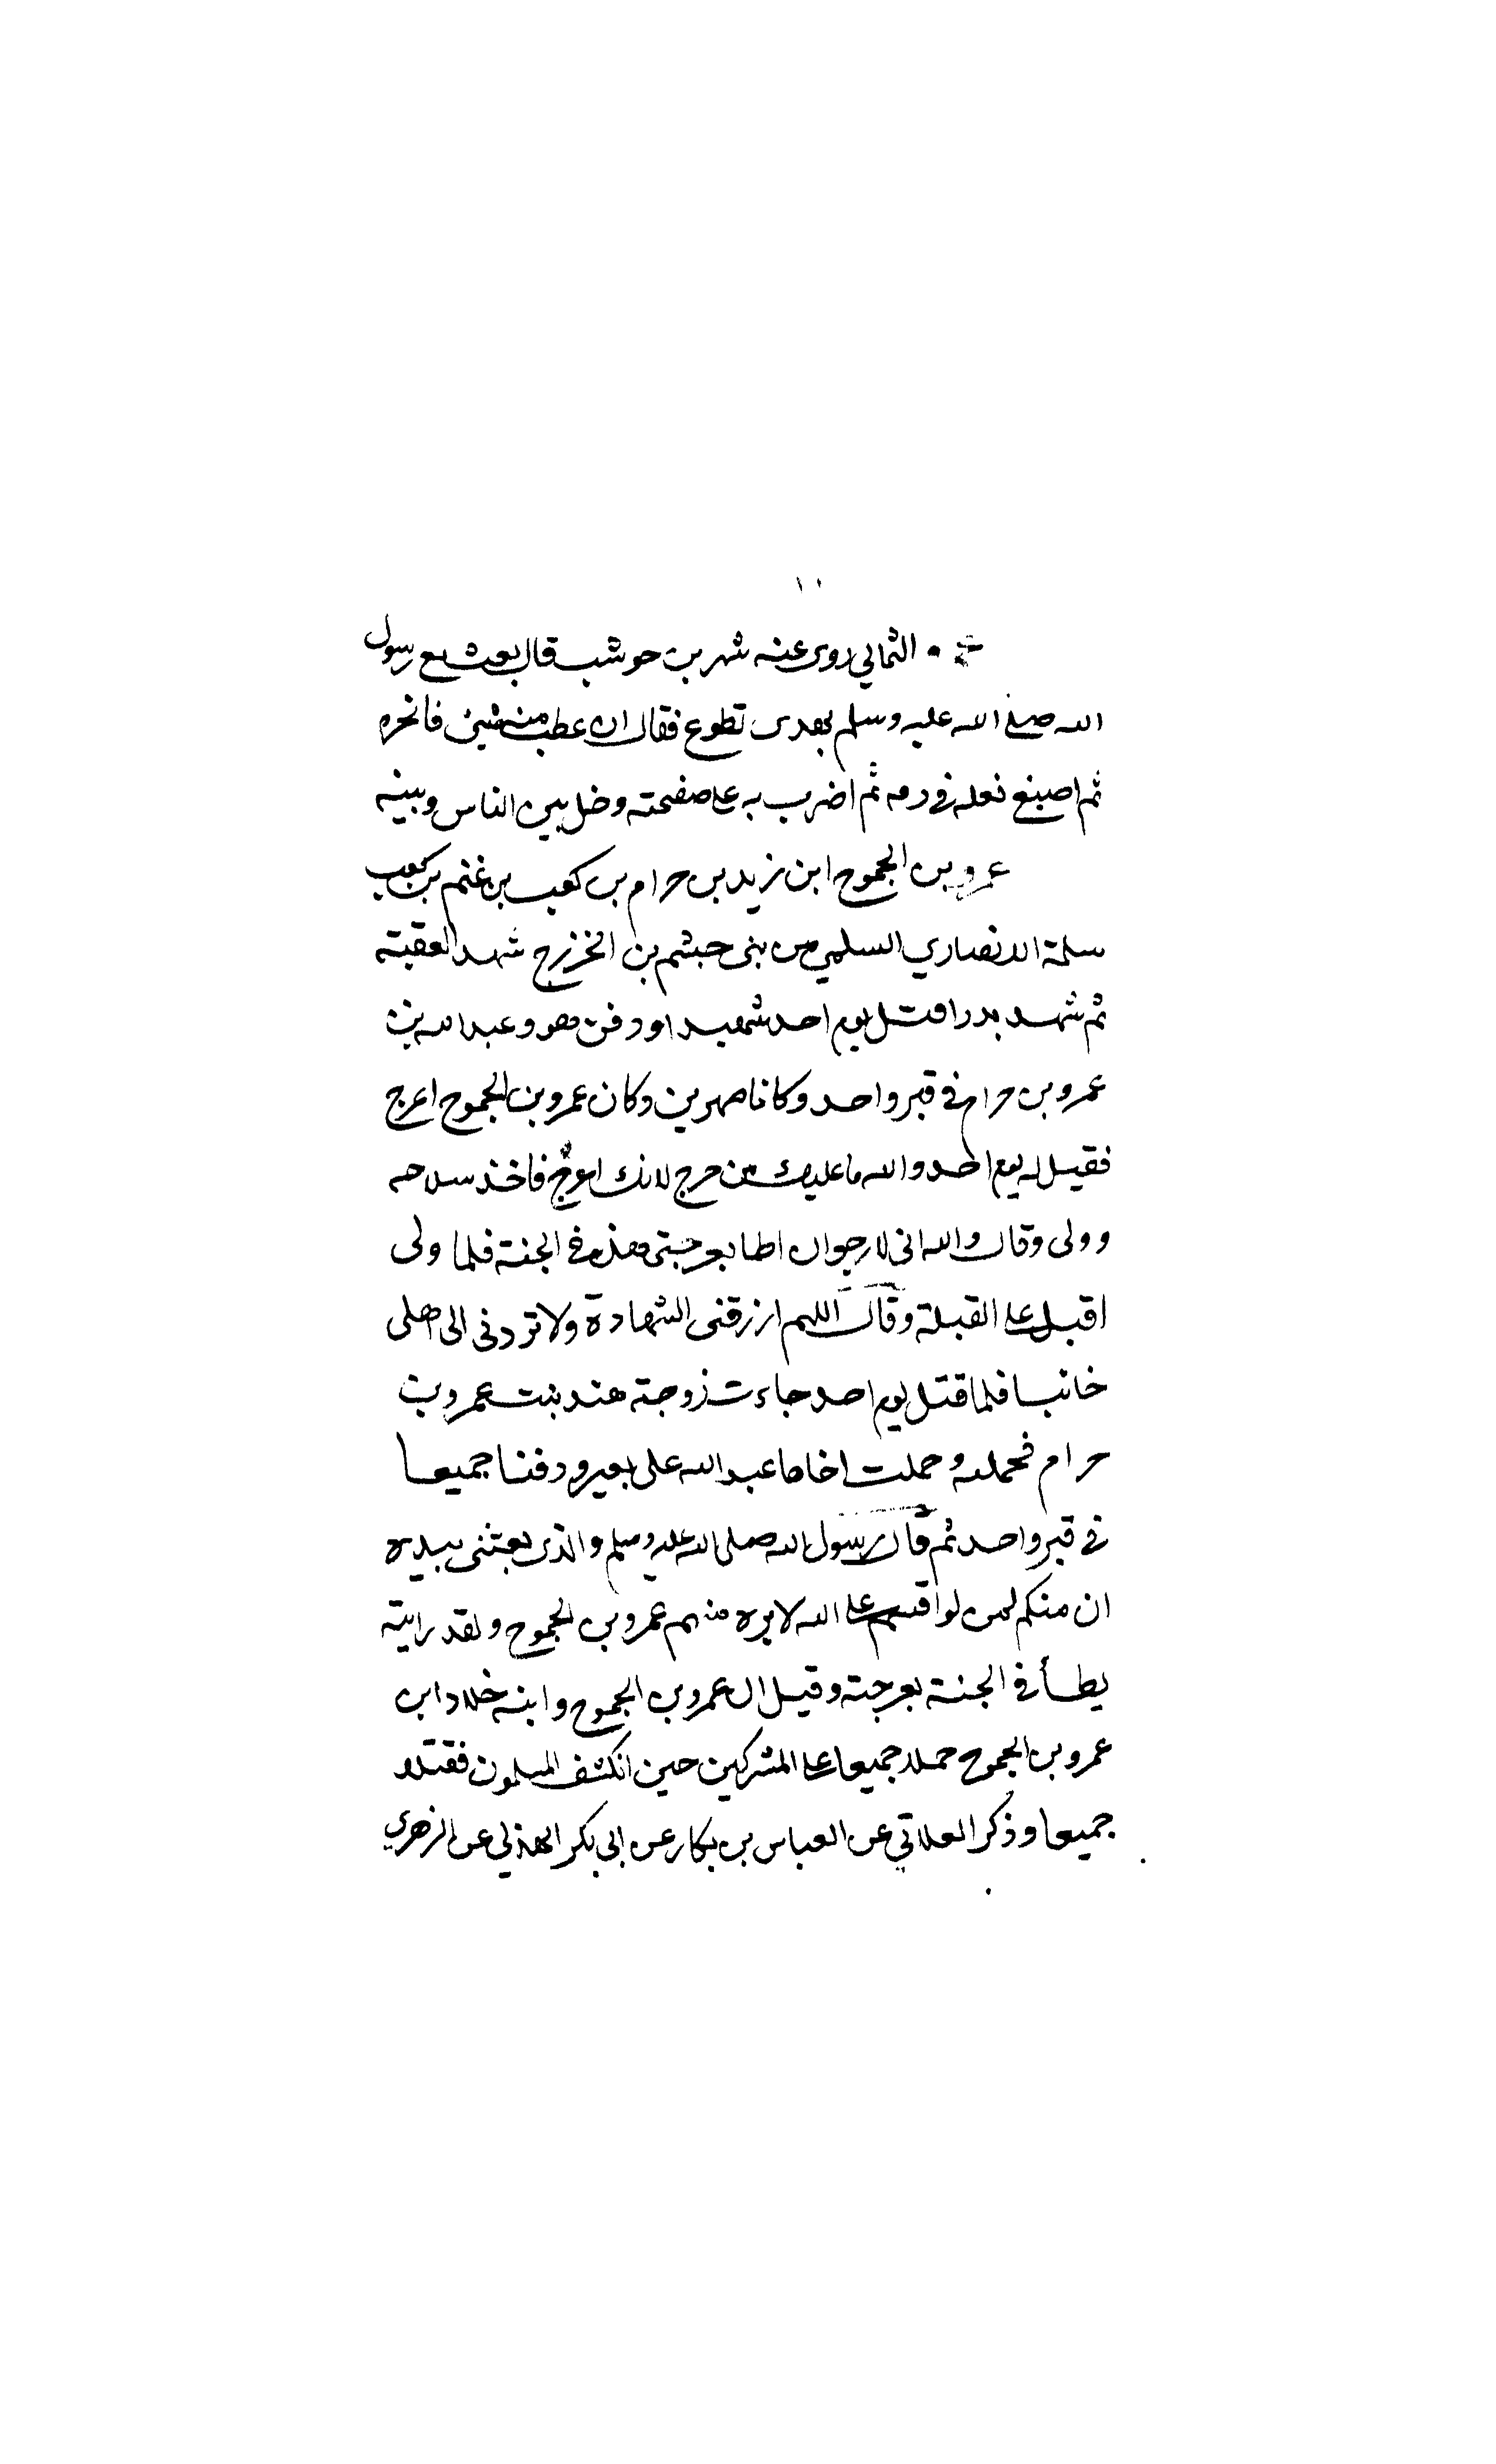 ١٠
الثمالي روى عنه شهر بن حوشب قال بعث مع رسول
الله صلى الله عليه وسلم بهدى تطوع فقال ان عطب منه شئ فانحره
ثم اصبغ نعله في دمه ثم اضرب به على صفحته وخل بين الناس وبينه
عمرو بن الجموح ابن زيد بن حرام بن كعب بن غنم بن كعب
سلمة الانصاري السلمي من بنى جشم بن الخزرج شهد العقبة
ثم شهد بدرا وقتل يوم احد شهيدا ودفن هو وعبد الله بن
عمرو بن حرام في قبر واحد وكانا صهرين وكان عمرو بن الجموح اعرج
فقيل له يوم احد والله ما عليك من حرج لانك اعرج فاخذ سلاحه
وولى وقال والله انى لارجو ان اطا بعرجتى هذه في الجنة فلما ولى
اقبل على القبلة وقال اللهم ارزقنى الشهادة ولا تردنى الى اهلى
خائبا فلما قتل يوم احد جاءت زوجته هند بنت عمرو بن
حرام فحملته وحملت اخاها عبد الله على بعير ودفنا جميعا
في قبر واحد ثم قال رسول الله صلى الله عليه وسلم والذى بعثنى بيده
ان منكم لمن لو اقسم على الله لابره منهم عمرو بن الجموح ولقد رايته
يطأ في الجنة بعرجته وقيل ان عمرو بن الجموح وابنه خلاد ابن
عمرو بن الجموح حملا جميعا على المشركين حين انكشف المسلمون فقتلا
جميعا وذكر العلاتي عن العباس بن بكار عن ابى بكر الهذلي عن الزهري